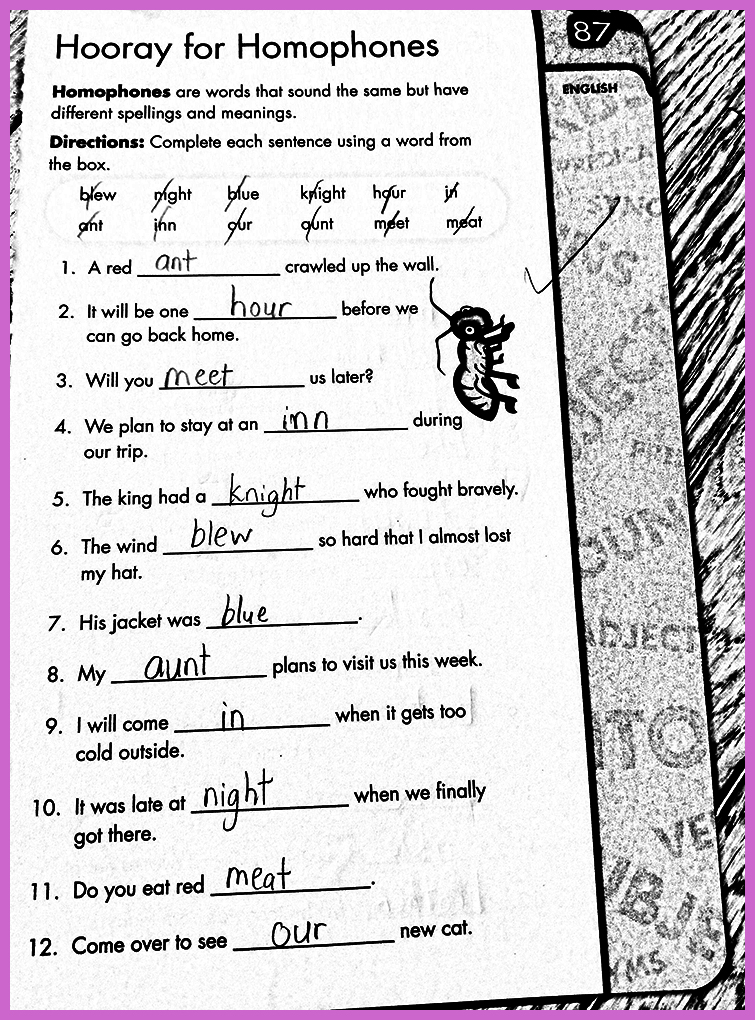 87
ENGLISH
Hooray for Homophones
Homophones are words that sound the same but have
different spellings and meanings.
Directions: Complete each sentence using a word from
the box.
blew night blue knight hour in
ant inn our aunt meet meat
1. A red ant crawled up the wall.
2. It will be one hour before we
can go back home.
3. Will you meet us later?
4. We plan to stay at an inn during
our trip.
5. The king had a knight who fought bravely.
6. The wind blew so hard that I almost lost
my hat.
7. His jacket was blue.
8. My aunt plans to visit us this week.
9. I will come in when it gets too
cold outside.
10. It was late at night when we finally
got there.
11. Do you eat red meat.
12. Come over to see our new cat.